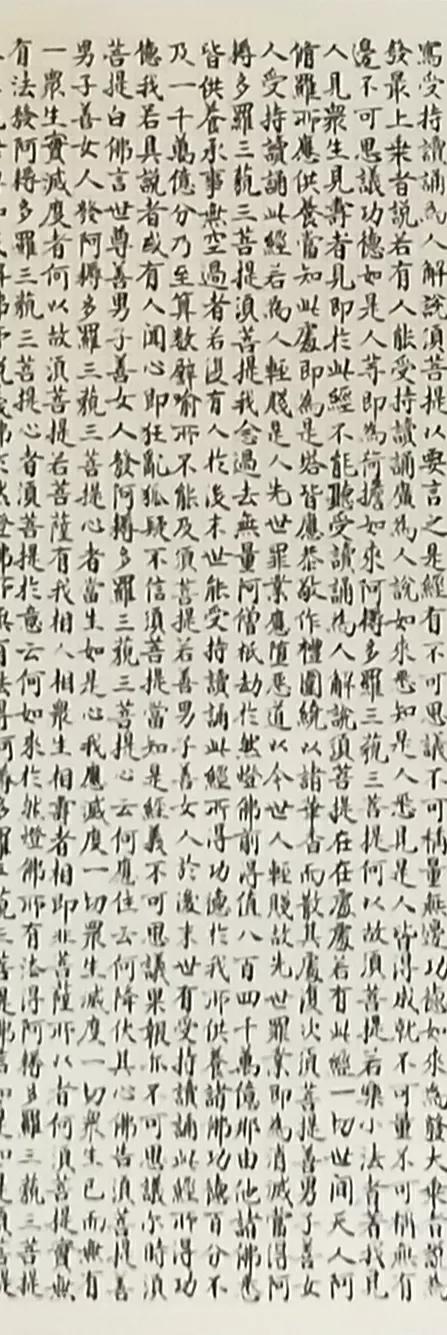 寫受持讀誦為人解說須菩提以要言之是經有不可思議不可稱量無邊功德如來為發大乘者說為
發最上乘者說若有人能受持讀誦廣為人說如來悉知是人悉見是人皆得成就不可量不可稱無有
邊不可思議功德如是人等即為荷擔如來阿耨多羅三藐三菩提何以故須菩提若樂小法者著我見
人見眾生見壽者見即於此經不能聽受讀誦為人解說須菩提在在處處若有此經一切世間天人阿
脩羅所應供養當知此處即為是塔皆應恭敬作禮圍繞以諸華香而散其處復次須菩提善男子善女
人受持讀誦此經若為人輕賤是人先世罪業應墮惡道以今世人輕賤故先世罪業即為消滅當得阿
耨多羅三藐三菩提須菩提我念過去無量阿僧祇劫於然燈佛前得值八百四千萬億那由他諸佛悉
皆供養承事無空過者若復有人於後末世能受持讀誦此經所得功德於我所供養諸佛功德百分不
及一千萬億分乃至算數譬喻所不能及須菩提若善男子善女人於後末世有受持讀誦此經所得功
德我若具說者或有人聞心即狂亂狐疑不信須菩提當知是經義不可思議果報亦不可思議尔時須
菩提白佛言世尊善男子善女人發阿耨多羅三藐三菩提心云何應住云何降伏其心佛告須菩提善
男子善女人發阿耨多羅三藐三菩提心者當生如是心我應滅度一切眾生滅度一切眾生已而無有
一眾生實滅度者何以故須菩提若菩薩有我相人相眾生相壽者相即非菩薩所以者何須菩提實無
有法發阿耨多羅三藐三菩提心者須菩提於意云何如來於然燈佛所有法得阿耨多羅三藐三菩提